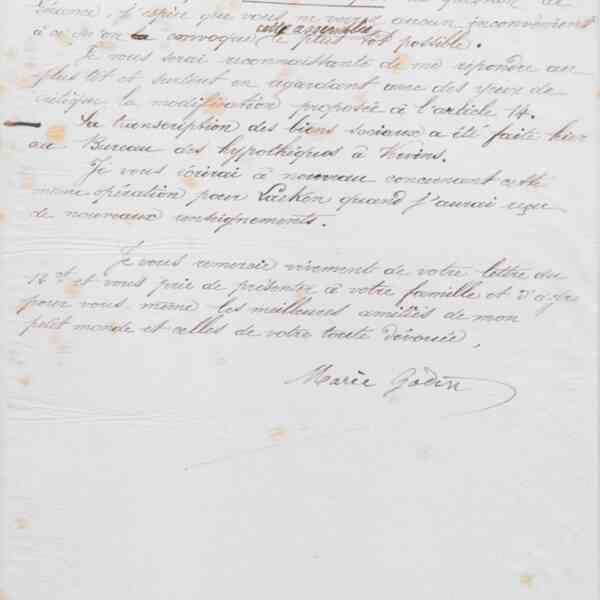 séance, j'espère que vous ne voyez aucun inconvénient
à ce qu'on la convoque cette assemblée le plus tôt possible.
Je vous serai reconnaissante de me répondre au
plus tôt et surtout en regardant avec des yeux de
critique la modification proposée à l'article 14.
La transcription des biens sociaux a été faite hier
au Bureau des hypothèques à Vervins.
Je vous écrirai à nouveau concernant cette
même opération pour Laeken quand j'aurai reçu
de nouveaux renseignements.
Je vous remercie vivement de votre lettre du
12 et vous prie de présenter à votre famille et d'agréer
pour vous-même les meilleures amitiés de mon
petit monde et celles de votre toute dévouée,
Marie Godin